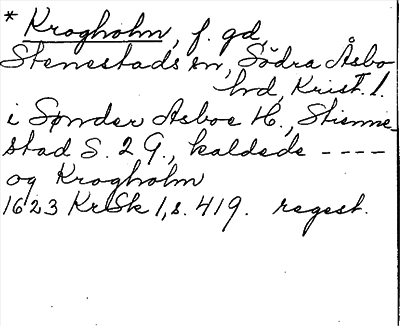 * Krogholm, f. gd,
Stenestads sn, Södra Åsbo
hd, Krist. l.
i Sønder Asboe H., Stienne-
stad S. 2 G., kaldede ----
og Krogholm
1623 KrSk 1, s. 419. regest.